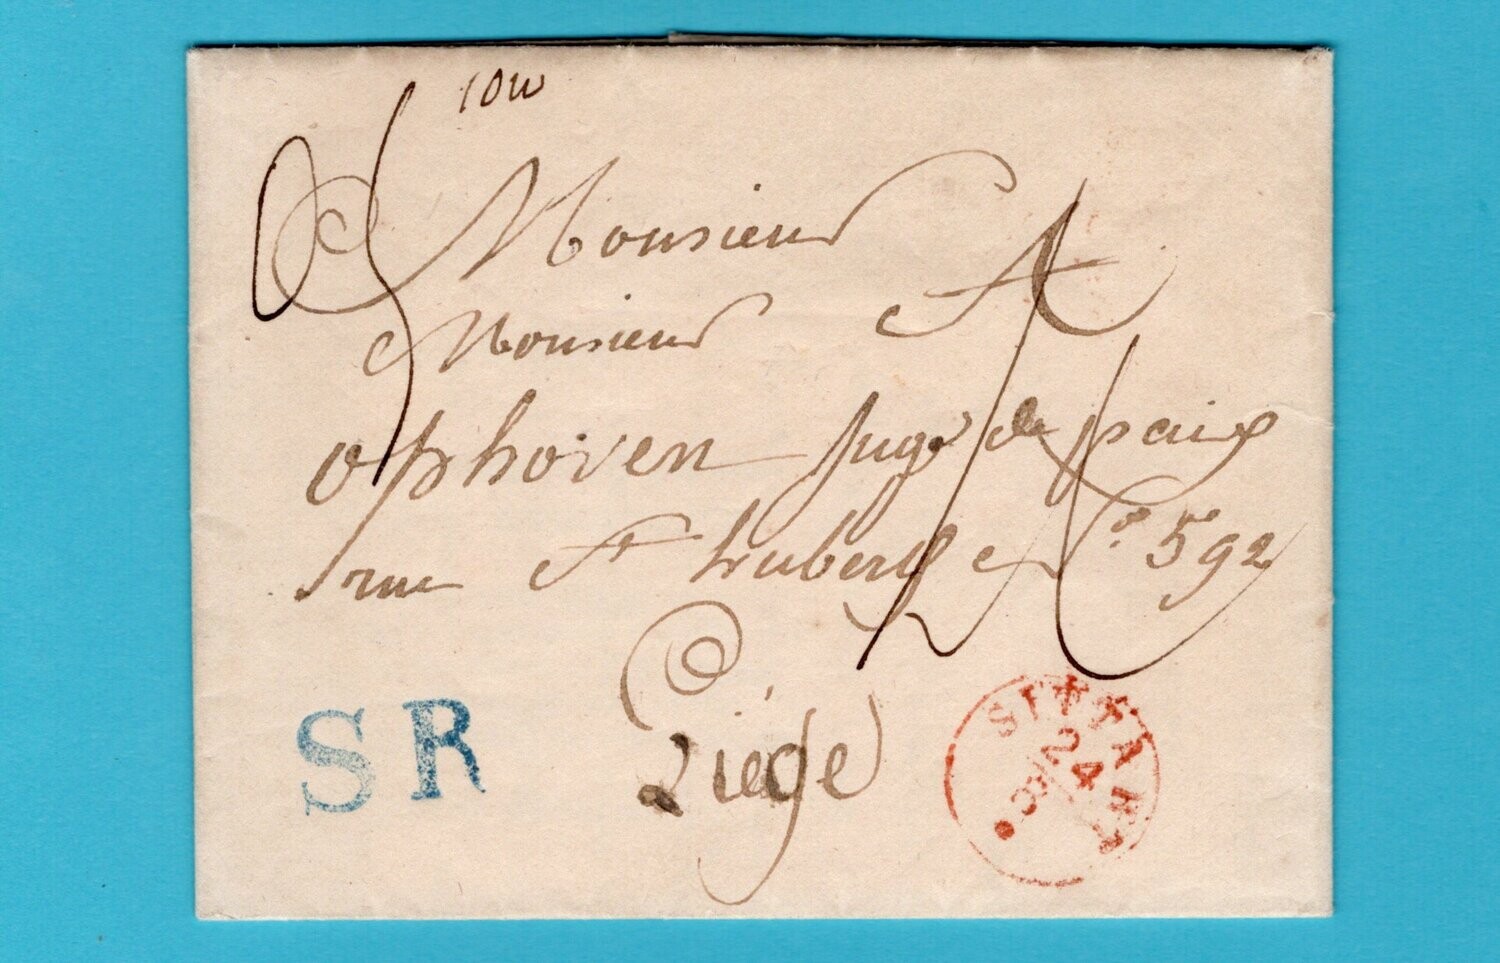 10w
Monsieur
Monsieur A
ophoven Juge de paix
rue St hubert No 592
Liége
SR
SITTARD
24